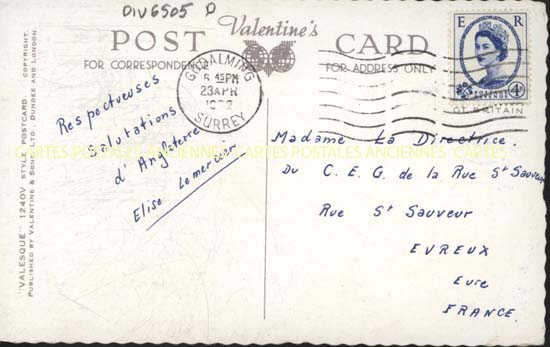 DIV6505 D
Valentine's
POST CARD
FOR CORRESPONDENCE
FOR ADDRESS ONLY
GODALMING
6 45 PM
23 APR
SURREY
E R
POSTAGE REVENUE
4D
GT BRITAIN
Respectueuses
Salutations
d'Angleterre
Elise Lemercier
Madame La Directrice
Du C. E. G. de la Rue St Sauveur
Rue St Sauveur
EVREUX
Eure
FRANCE.
CARTES POSTALES ANCIENNES CARTES POSTALES ANCIENNES CARTES
"VALESQUE" 1240V STYLE POSTCARD. COPYRIGHT.
PUBLISHED BY VALENTINE & SONS, LTD., DUNDEE AND LONDON